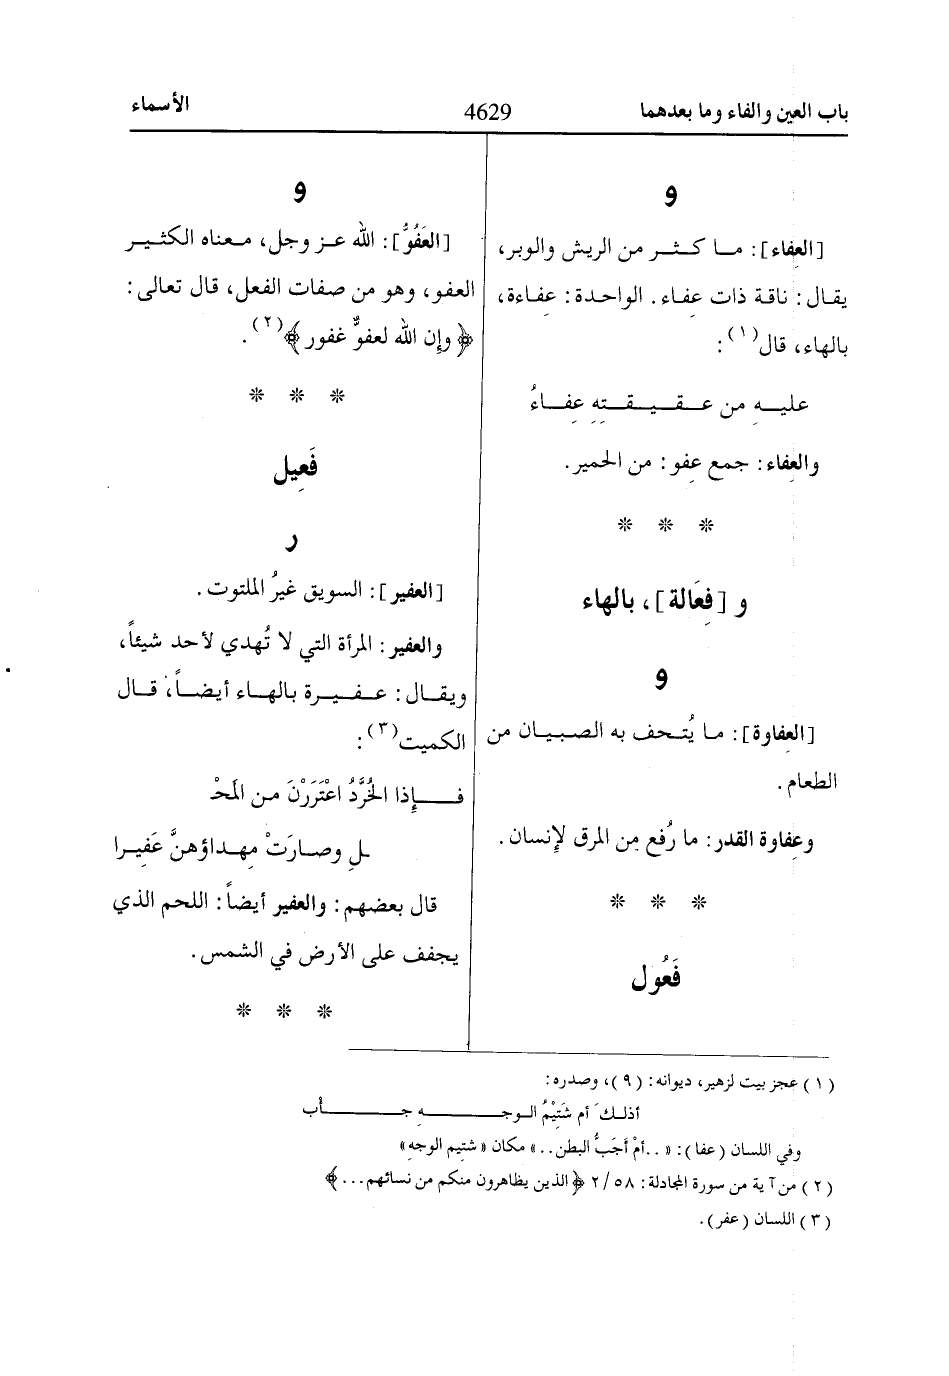 باب العين والفاء وما بعدهما
4629
الأسماء
و
[العِفاء]: مـا كـثـر من الريش والوبر،
يقـال: ناقة ذات عفـاء. الواحدة: عفـاءة،
بالهاء، قال(١):
عليـهِ من عـقـيـقـتِهِ عِفـاءُ
والعِفاء: جمع عفو: من الحمير.
* * *
و [فِعَالة]، بالهاء
و
[العِفاوة]: مـا يُتـحف به الصبـيـان من
الطعام.
وعِفاوة القدر: ما رُفع مِن المرق لإنسان.
* * *
فَعُول
و
[العَفُوُّ]: الله عـز وجل، مـعناه الكثـيـر
العفو، وهو من صفات الفعل، قال تعالى:
﴿وإن الله لعفوٌّ غفور﴾(٢).
* * *
فَعِيل
ر
[العفير]: السويق غيرُ الملتوت.
والعفير: المرأة التي لا تُهدي لأحد شيئاً،
ويقـال: عـفـيـرة بالهـاء أيضـاً، قـال
الكميت(٣):
فـــإِذا الخُرَّدُ اعْتَرَرْنَ من المَحْـ
ـلِ وصارَتْ مِهـداؤهنَّ عَفِيـرا
قال بعضهم: والعفير أيضاً: اللحم الذي
يجفف على الأرض في الشمس.
* * *
(١) عجز بيت لزهير، ديوانه: (٩)، وصدره:
أذلـكَ أم شَتِيْمُ الـوجـــــهِ جــــــأْب
وفي اللسان (عفا): «..أمْ أجَبُّ البطن..» مكان «شتيم الوجهِ»
(٢) من آية من سورة المجادلة: ٥٨/ ٢ ﴿الذين يظاهرون منكم من نسائهم...﴾
(٣) اللسان (عفر).